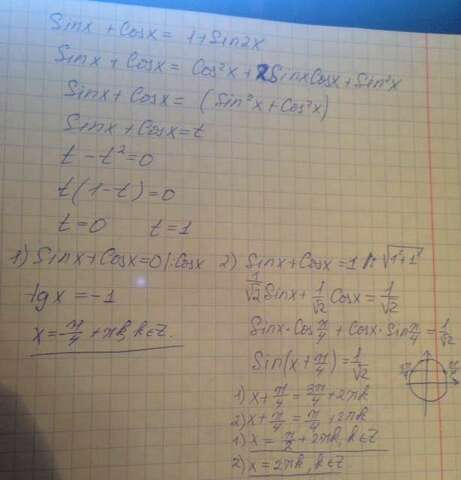 Sinx + Cosx = 1+Sin2x
Sinx + Cosx = Cos²x + 2SinxCosx + Sin²x
Sinx + Cosx = (Sin²x + Cos²x)
Sinx + Cosx = t
t - t² = 0
t(1-t) = 0
t=0 t=1
1) Sinx + Cosx = 0 |:Cosx
tgx = -1
x = -π/4 + πk, k∈Z.
2) Sinx + Cosx = 1 |: √(1²+1²)
1/√2 Sinx + 1/√2 Cosx = 1/√2
Sinx·Cos π/4 + Cosx·Sin π/4 = 1/√2
Sin(x + π/4) = 1/√2
3π/4 π/4
1) x + π/4 = 3π/4 + 2πk
2) x + π/4 = π/4 + 2πk
1) x = π/2 + 2πk, k∈Z
2) x = 2πk, k∈Z.